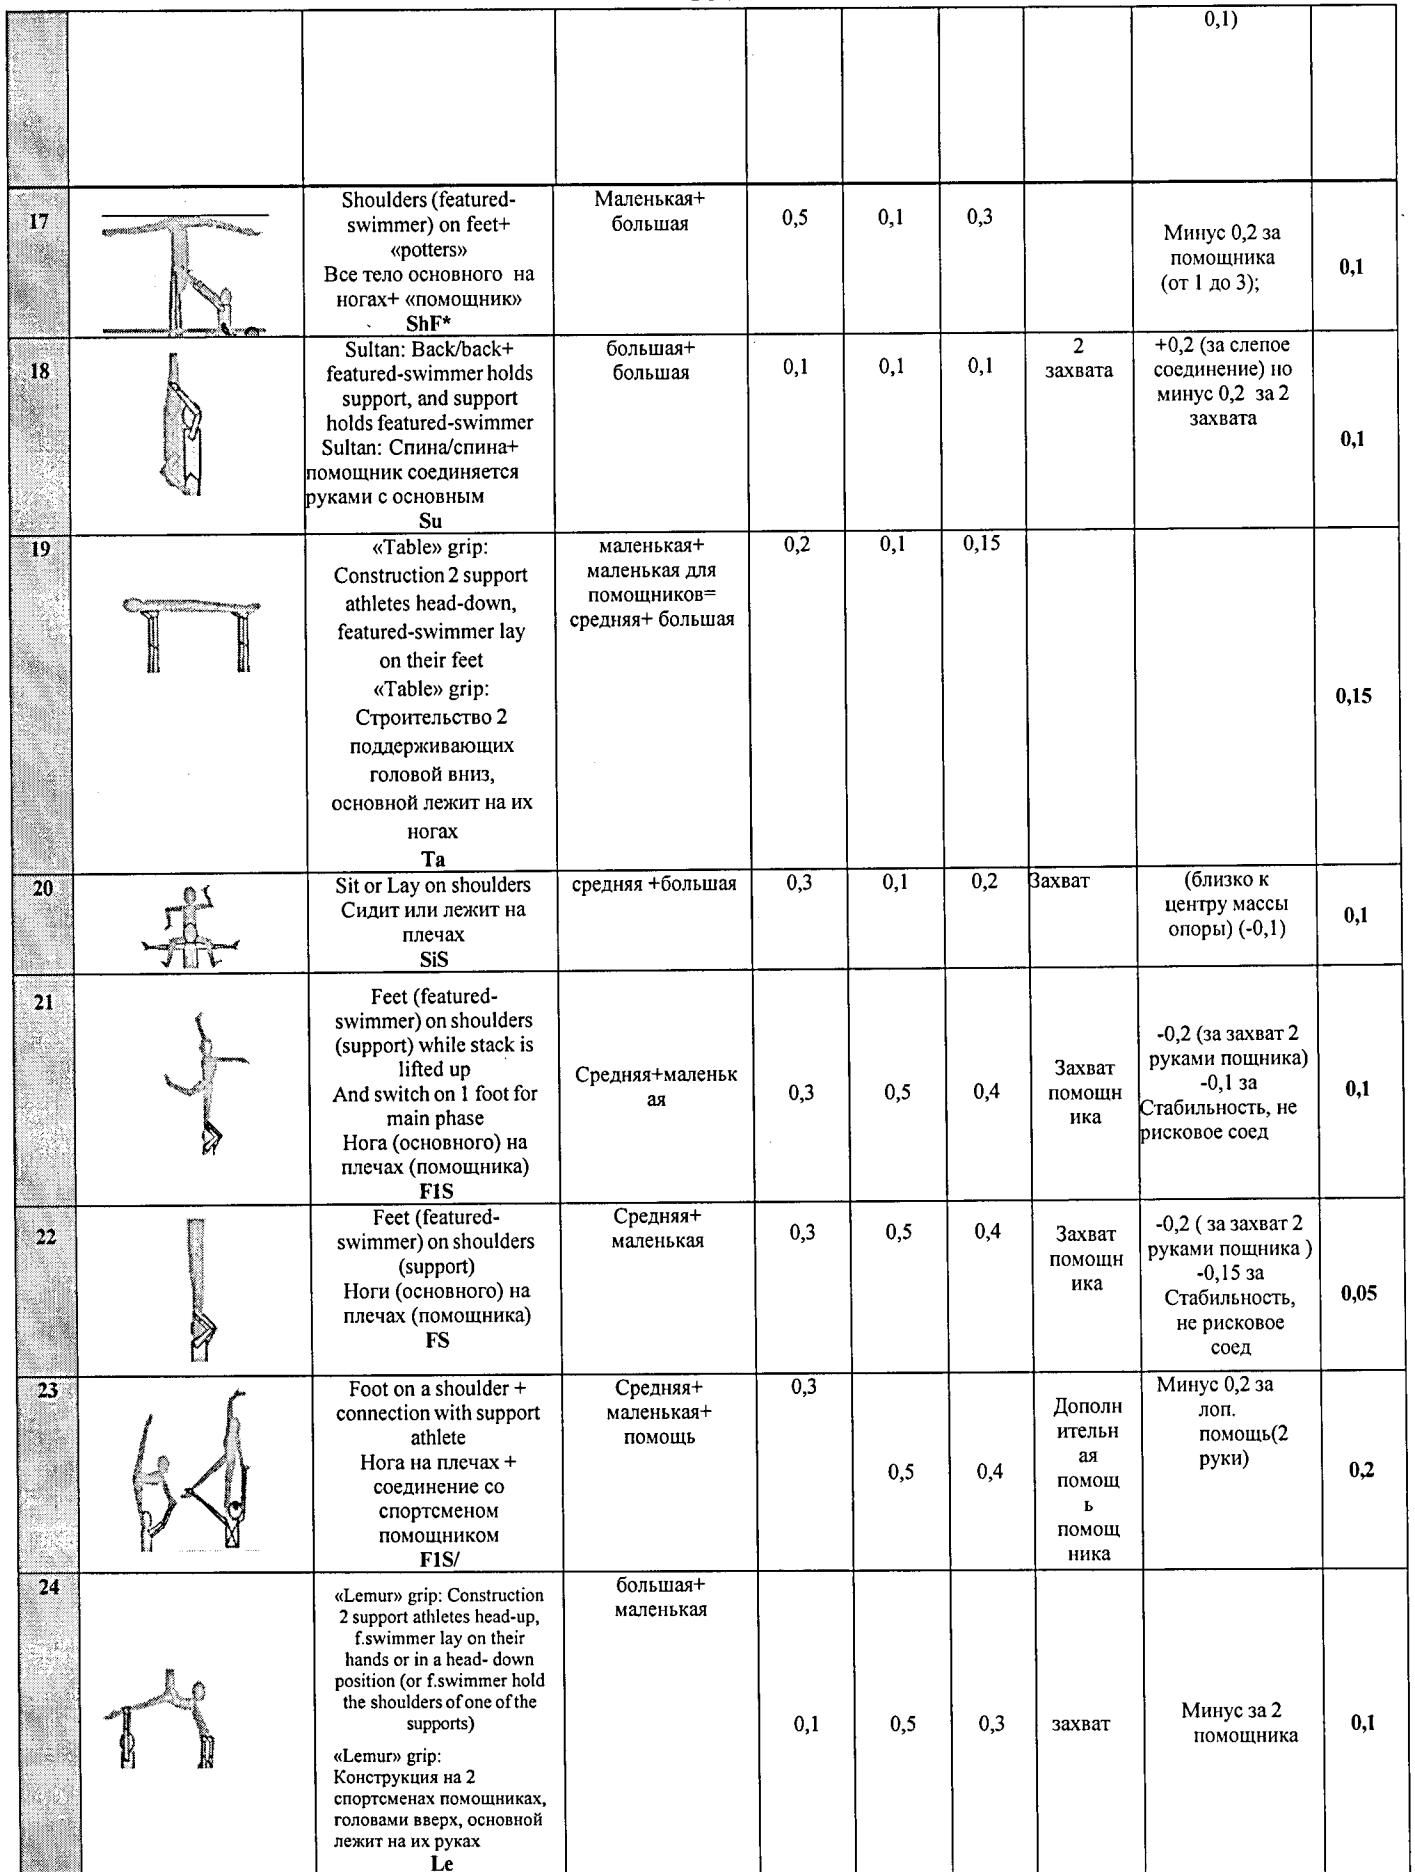 0,1)
17
Shoulders (featured-
swimmer) on feet+
«potters»
Все тело основного на
ногах+ «помощник»
ShF*
Маленькая+
большая
0,5
0,1
0,3
Минус 0,2 за
помощника
(от 1 до 3);
0,1
18
Sultan: Back/back+
featured-swimmer holds
support, and support
holds featured-swimmer
Sultan: Спина/спина+
помощник соединяется
руками с основным
Su
большая+
большая
0,1
0,1
0,1
2
захвата
+0,2 (за слепое
соединение) но
минус 0,2 за 2
захвата
0,1
19
«Table» grip:
Construction 2 support
athletes head-down,
featured-swimmer lay
on their feet
«Table» grip:
Строительство 2
поддерживающих
головой вниз,
основной лежит на их
ногах
Ta
маленькая+
маленькая для
помощников=
средняя+ большая
0,2
0,1
0,15
0,15
20
Sit or Lay on shoulders
Сидит или лежит на
плечах
SiS
средняя +большая
0,3
0,1
0,2
Захват
(близко к
центру массы
опоры) (-0,1)
0,1
21
Feet (featured-
swimmer) on shoulders
(support) while stack is
lifted up
And switch on 1 foot for
main phase
Нога (основного) на
плечах (помощника)
F1S
Средняя+маленьк
ая
0,3
0,5
0,4
Захват
помощн
ика
-0,2 (за захват 2
руками пощника)
-0,1 за
Стабильность, не
рисковое соед
0,1
22
Feet (featured-
swimmer) on shoulders
(support)
Ноги (основного) на
плечах (помощника)
FS
Средняя+
маленькая
0,3
0,5
0,4
Захват
помощн
ика
-0,2 ( за захват 2
руками пощника )
-0,15 за
Стабильность,
не рисковое
соед
0,05
23
Foot on a shoulder +
connection with support
athlete
Нога на плечах +
соединение со
спортсменом
помощником
F1S/
Средняя+
маленькая+
помощь
0,3
0,5
0,4
Дополн
ительн
ая
помощ
ь
помощ
ника
Минус 0,2 за
лоп.
помощь(2
руки)
0,2
24
«Lemur» grip: Construction
2 support athletes head-up,
f.swimmer lay on their
hands or in a head- down
position (or f.swimmer hold
the shoulders of one of the
supports)
«Lemur» grip:
Конструкция на 2
спортсменах помощниках,
головами вверх, основной
лежит на их руках
Le
большая+
маленькая
0,1
0,5
0,3
захват
Минус за 2
помощника
0,1